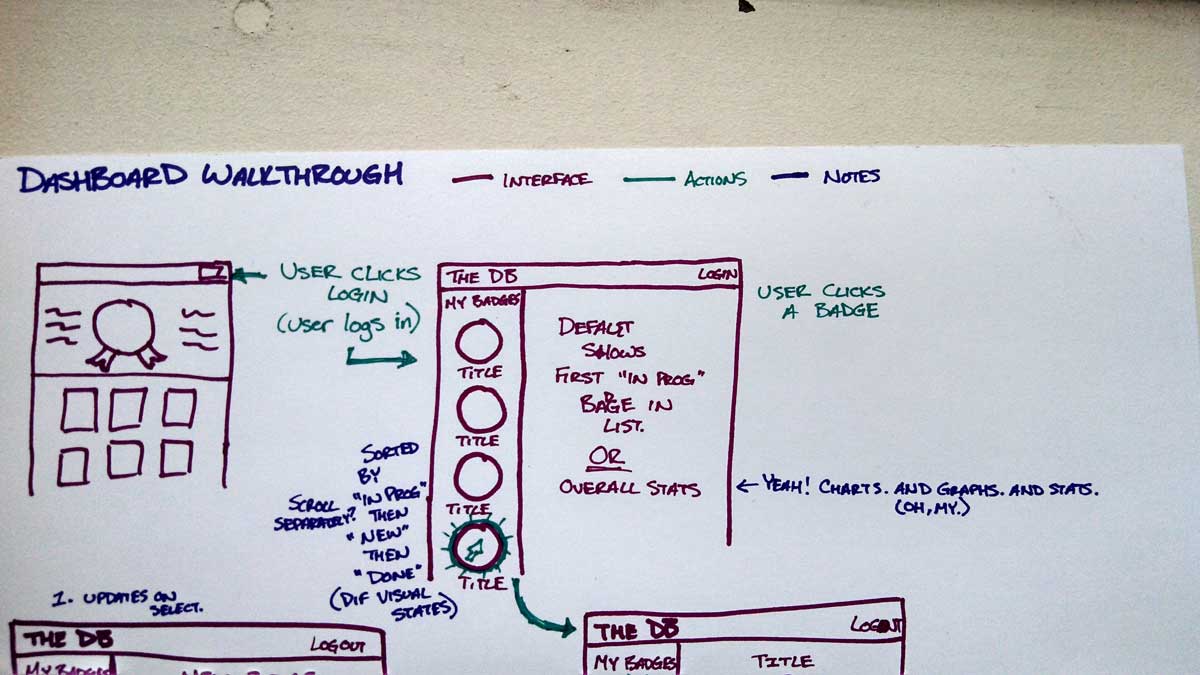 DASHBOARD WALKTHROUGH
INTERFACE
ACTIONS
NOTES
USER CLICKS
LOGIN
(user logs in)
THE DB
LOGIN
MY BADGES
TITLE
TITLE
TITLE
TITLE
DEFALT
SHOWS
FIRST "IN PROG"
BADGE IN
LIST.
OR
OVERALL STATS
USER CLICKS
A BADGE
YEAH! CHARTS. AND GRAPHS. AND STATS.
(OH, MY.)
SORTED
BY
"IN PROG"
THEN
"NEW"
THEN
"DONE"
(DIF VISUAL
STATES)
SCROLL
SEPARATELY?
1. UPDATES ON
SELECT.
THE DB
LOGOUT
MY BADGES
THE DB
LOGOUT
MY BADGES
TITLE